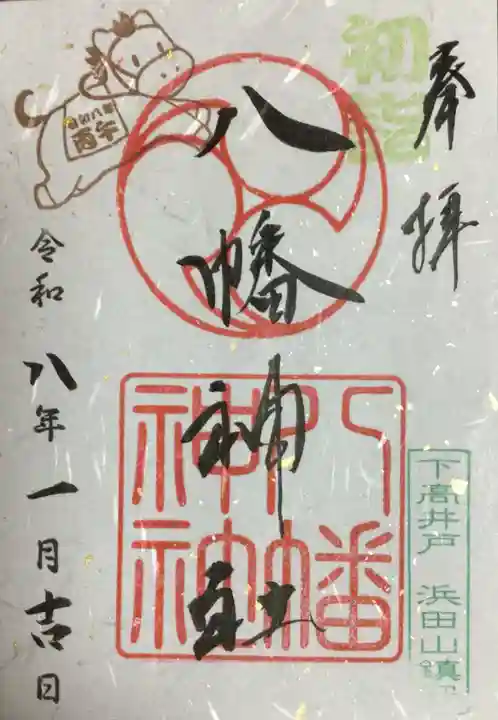 奉拝
初詣
八幡神社
八幡
神社
下高井戸 浜田山鎮
令和八年
丙午
令和八年一月吉日